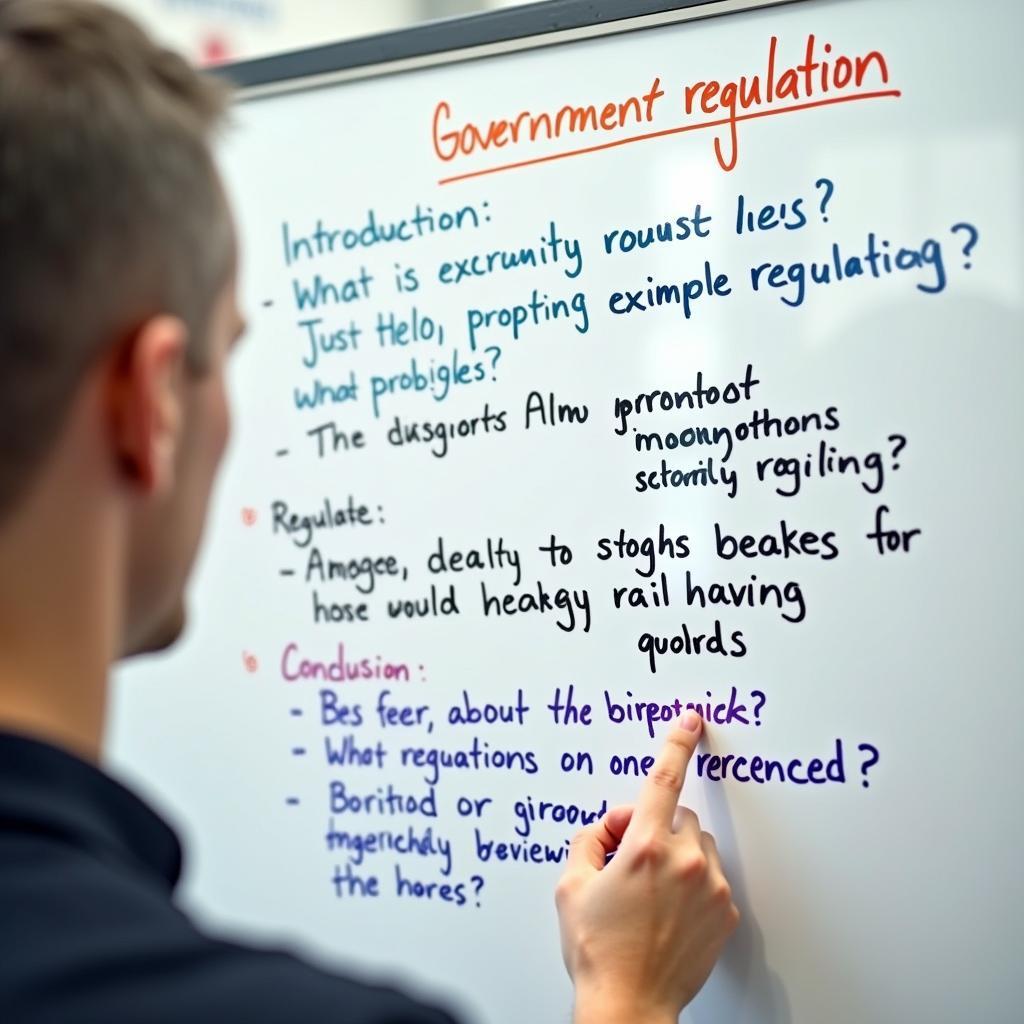 Government regulation
Introduction:
- What is excrunity rouust lieis?
Just Helo, propting eximple regulatiog?
What probigles?
- The dusgiorts Almu prrontoot
moonyothons
sctomily rogiling?
Regulate:
- Amogce, dealty to stoghs beakes for
hose would heakgy rail having
quolrds
Condusion:
- Bes feer, about the birpotnick?
- What reguations on one rercenced?
- Boritiod or giroou
the hores?